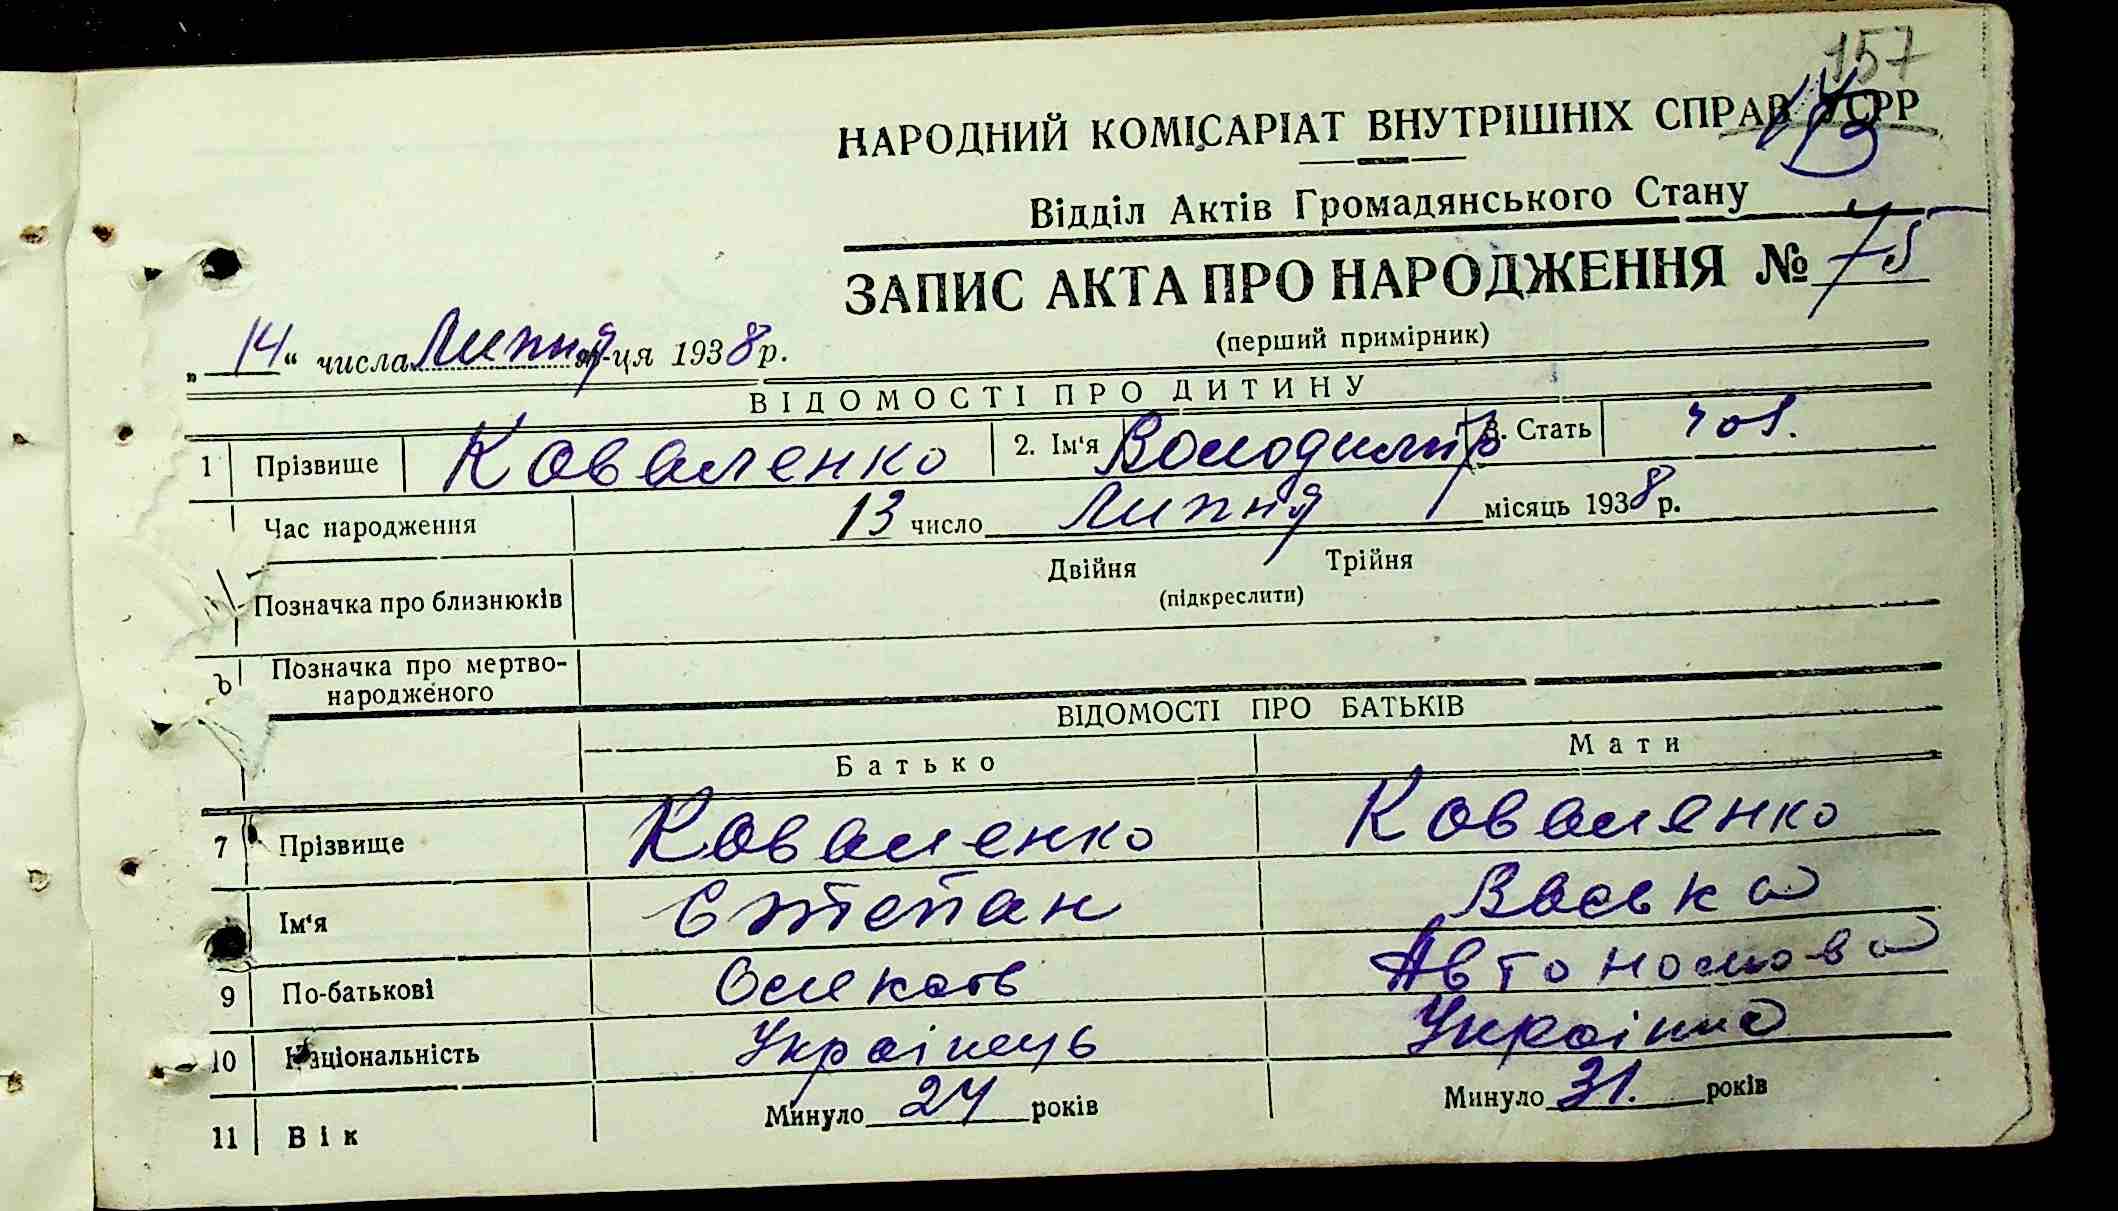 157
НАРОДНИЙ КОМІСАРІАТ ВНУТРІШНІХ СПРАВ УСРР
Відділ Актів Громадянського Стану
ЗАПИС АКТА ПРО НАРОДЖЕННЯ № 75
(перший примірник)
„14“ числа Липня м-ця 1938 р.
ВІДОМОСТІ ПРО ДИТИНУ
1 Прізвище Коваленко 2. Ім'я Володимир 3. Стать чов.
Час народження 13 число Липня місяць 1938 р.
Двійня Трійня
Позначка про близнюків (підкреслити)
Позначка про мертво-
народженого
ВІДОМОСТІ ПРО БАТЬКІВ
Батько Мати
7 Прізвище Коваленко Коваленко
Ім'я Степан Васька
9 По-батькові Автономова
10 Національність Українець Українка
11 Вік Минуло 24 років Минуло 31. років